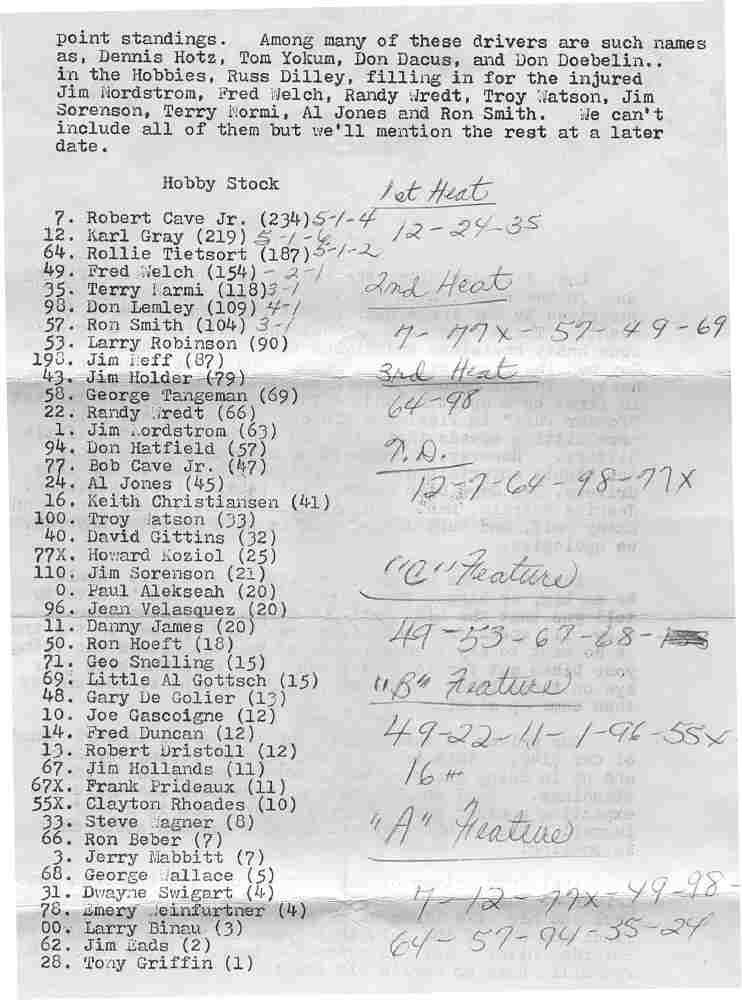 point standings. Among many of these drivers are such names
as, Dennis Hotz, Tom Yokum, Don Dacus, and Don Doebelin..
in the Hobbies, Russ Dilley, filling in for the injured
Jim Nordstrom, Fred Welch, Randy Wredt, Troy Watson, Jim
Sorenson, Terry Normi, Al Jones and Ron Smith. We can't
include all of them but we'll mention the rest at a later
date.
Hobby Stock
7. Robert Cave Jr. (234) 5-1-4
12. Karl Gray (219) 5-1-6
64. Rollie Tietsort (187) 5-1-2
49. Fred Welch (154) - 2-1
35. Terry (118) 3-1
98. Don Lemley (109) 4-1
57. Ron Smith (104) 3-1
53. Larry Robinson (90)
198. Jim Neff (87)
43. Jim Holder (79)
58. George Tangeman (69)
22. Randy Wredt (66)
1. Jim Nordstrom (63)
94. Don Hatfield (57)
77. Bob Cave Jr. (47)
24. Al Jones (45)
16. Keith Christiansen (41)
100. Troy Watson (33)
40. David Gittins (32)
77X. Howard Koziol (25)
110. Jim Sorenson (21)
0. Paul Alekseah (20)
96. Jean Velasquez (20)
11. Danny James (20)
50. Ron Hoeft (18)
71. Geo Snelling (15)
69. Little Al Gottsch (15)
48. Gary De Golier (13)
10. Joe Gascoigne (12)
14. Fred Duncan (12)
13. Robert Dristoll (12)
67. Jim Hollands (11)
67X. Frank Prideaux (11)
55X. Clayton Rhoades (10)
33. Steve Wagner (8)
66. Ron Beber (7)
3. Jerry Mabbitt (7)
68. George Wallace (5)
31. Dwayne Swigart (4)
78. Emery Weinfurtner (4)
00. Larry Binau (3)
62. Jim Eads (2)
28. Tony Griffin (1)
1st Heat
12-24-35
2nd Heat
7-77X-57-49-69
3rd Heat
64-98
T.D.
12-7-64-98-77X
"C" Feature
49-53-67-68-
"B" Feature
49-22-11-1-96-55X
16 #
"A" Feature
7-12-77X-49-98-
64-57-94-35-24